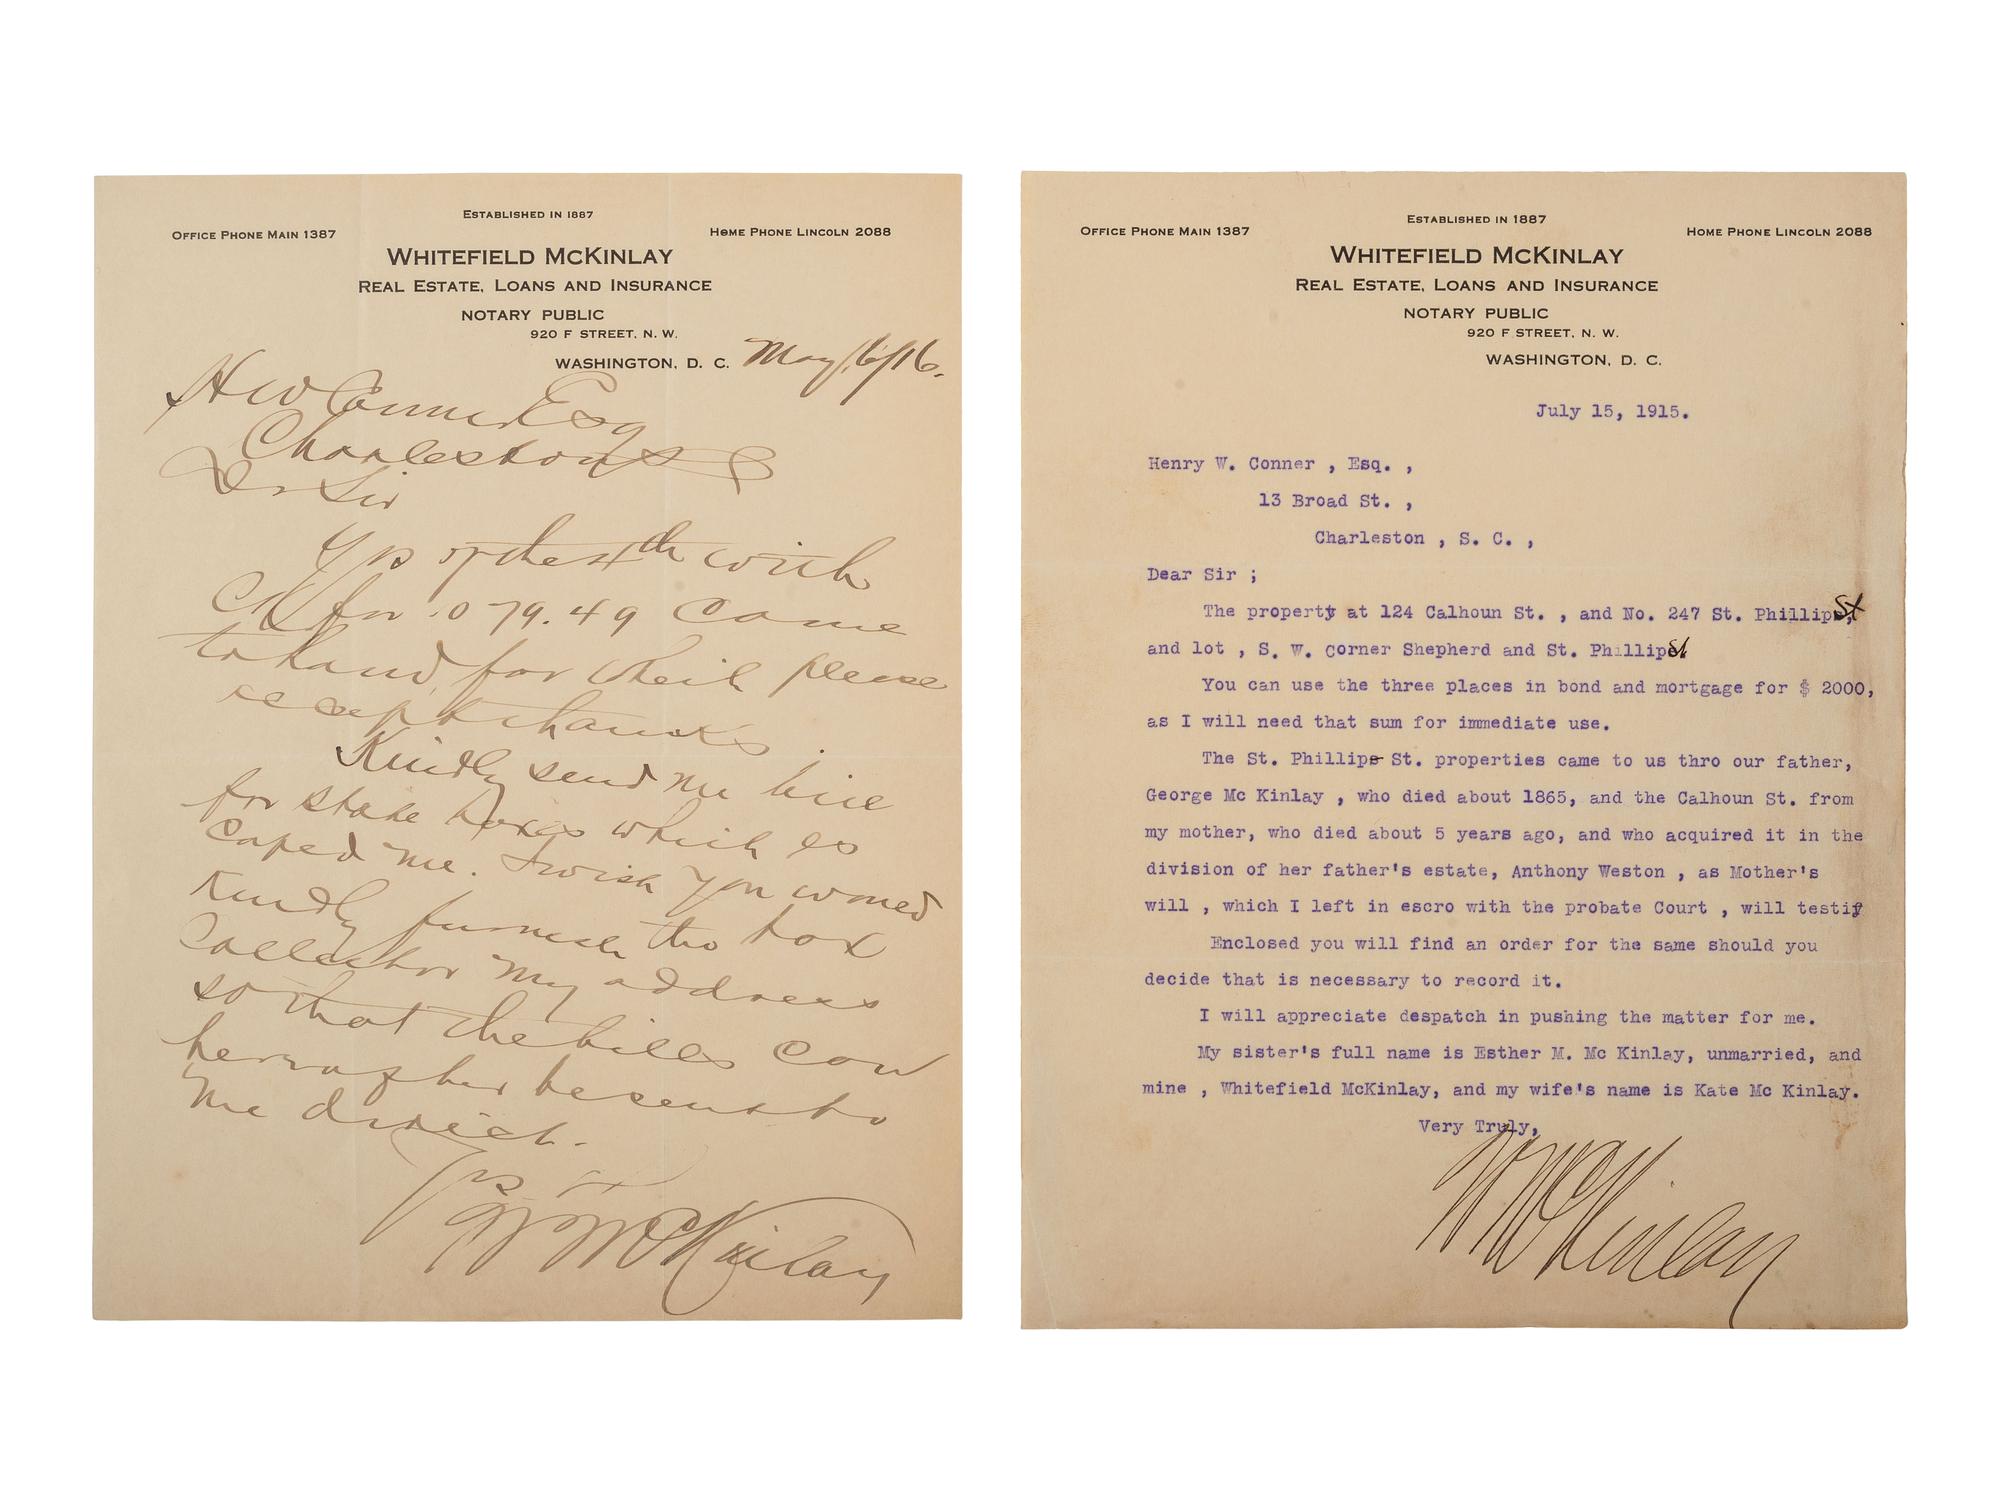 ESTABLISHED IN 1887
OFFICE PHONE MAIN 1387
HOME PHONE LINCOLN 2088
WHITEFIELD MCKINLAY
REAL ESTATE, LOANS AND INSURANCE
NOTARY PUBLIC
920 F STREET, N. W.
WASHINGTON, D. C. May/6/16.
H W Conner Esq
Charleston
Dr Sir
Yrs of the 4th with
Ck for 79.49 came
to hand, for which please
accept thanks.
Kindly send me bill
for state taxes which es
caped me. I wish you would
kindly furnish the tax
Collector my address
so that the bills can
hereafter be sent to
me direct.
Yrs
W McKinlay
ESTABLISHED IN 1887
OFFICE PHONE MAIN 1387
HOME PHONE LINCOLN 2088
WHITEFIELD MCKINLAY
REAL ESTATE, LOANS AND INSURANCE
NOTARY PUBLIC
920 F STREET, N. W.
WASHINGTON, D. C.
July 15, 1915.
Henry W. Conner , Esq. ,
13 Broad St. ,
Charleston , S. C. ,
Dear Sir ;
The property at 124 Calhoun St. , and No. 247 St. Phillip St,
and lot , S. W. Corner Shepherd and St. Phillip St.
You can use the three places in bond and mortgage for $ 2000,
as I will need that sum for immediate use.
The St. Phillips St. properties came to us thro our father,
George Mc Kinlay , who died about 1865, and the Calhoun St. from
my mother, who died about 5 years ago, and who acquired it in the
division of her father's estate, Anthony Weston , as Mother's
will , which I left in escro with the probate Court , will testify
Enclosed you will find an order for the same should you
decide that is necessary to record it.
I will appreciate despatch in pushing the matter for me.
My sister's full name is Esther M. Mc Kinlay, unmarried, and
mine , Whitefield McKinlay, and my wife's name is Kate Mc Kinlay.
Very Truly,
W McKinlay